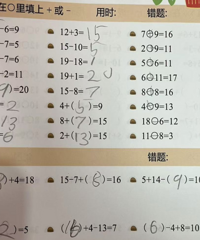 在○里填上+或- 用时: 错题:
-6=9 12+3=15 7+9=16
-7=5 15-10=5 2+9=11
-7=6 19-18=1 5+6=11
-2=11 19+1=20 6+11=17
)=20 15-8=7 8+8=16
=2 4+(5)=9 4+9=13
13 8+(7)=15 18-6=12
=6 2+(13)=15 11-8=3
错题:
)+4=18 15-7+(8)=16 5+14-(9)=10
2)=5 (16)+4-13=7 (6)-4+8=10